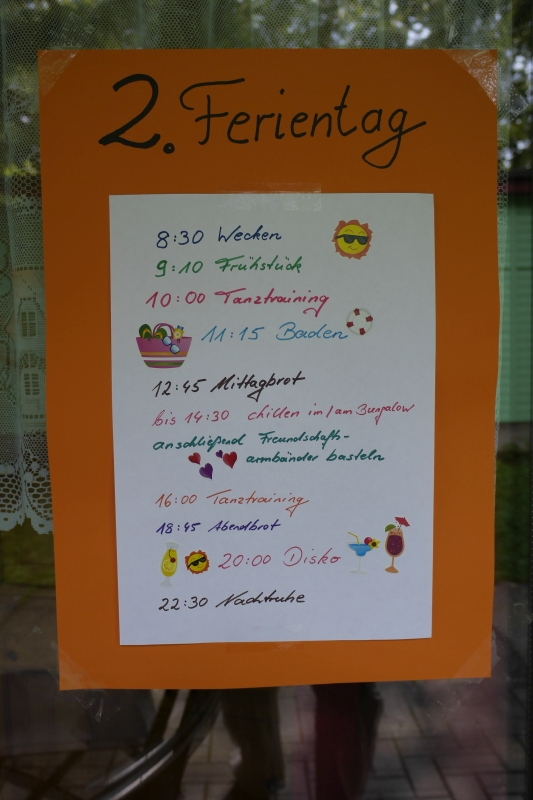 2. Ferientag
8:30 Wecken
9:10 Frühstück
10:00 Tanztraining
11:15 Baden
12:45 Mittagbrot
bis 14:30 chillen im/am Bungalow
anschließend Freundschafts-
armbänder basteln
16:00 Tanztraining
18:45 Abendbrot
20:00 Disko
22:30 Nachtruhe